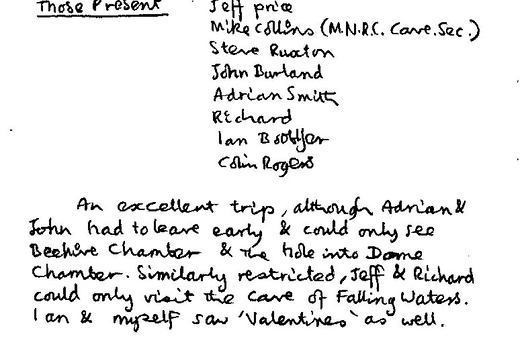 Those Present
Jeff Price
Mike Collins (M.N.R.C. Cave. Sec.)
Steve Ruxton
John Burland
Adrian Smith
Richard
Ian
Colin Rogers
An excellent trip, although Adrian &
John had to leave early & could only see
Beehive Chamber & the hole into Dome
Chamber. Similarly restricted, Jeff & Richard
could only visit the Cave of Falling Waters.
I an & myself saw 'Valentines' as well.